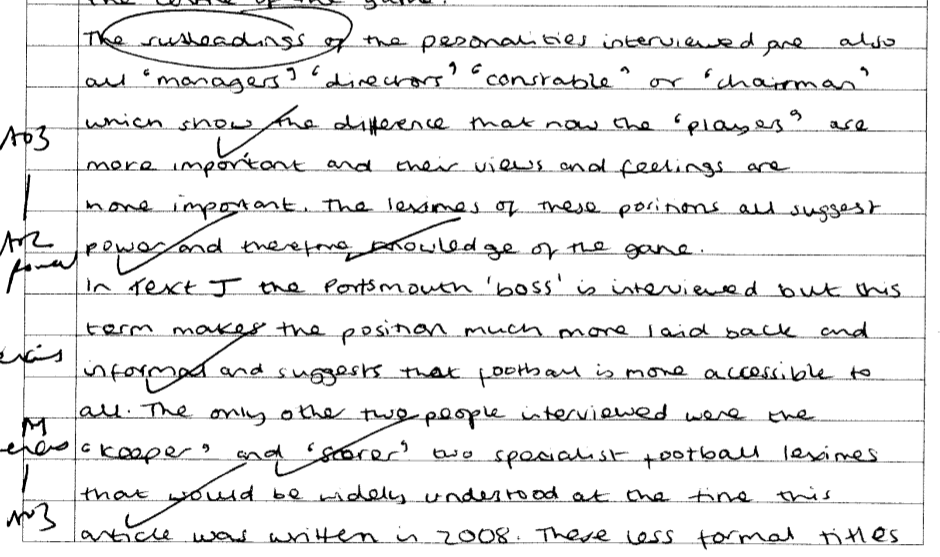 The subheadings of the pesonalities interviewed are also
all "managers" "directors" "constable" or "chairman"
AO3
which show the difference that now the "players" are
more important and their views and feelings are
more important. The lexemes of these positions all suggest
AO2
power and therefore knowledge of the game.
In Text J the Portsmouth 'boss' is interviewed but this
term makes the position much more laid back and
informal and suggests that football is more accessible to
all. The only other two people interviewed were the
M
"keeper" and 'scorer' two specialist football lexemes
that would be widely understood at the time this
AO3
article was written in 2008. These less formal titles